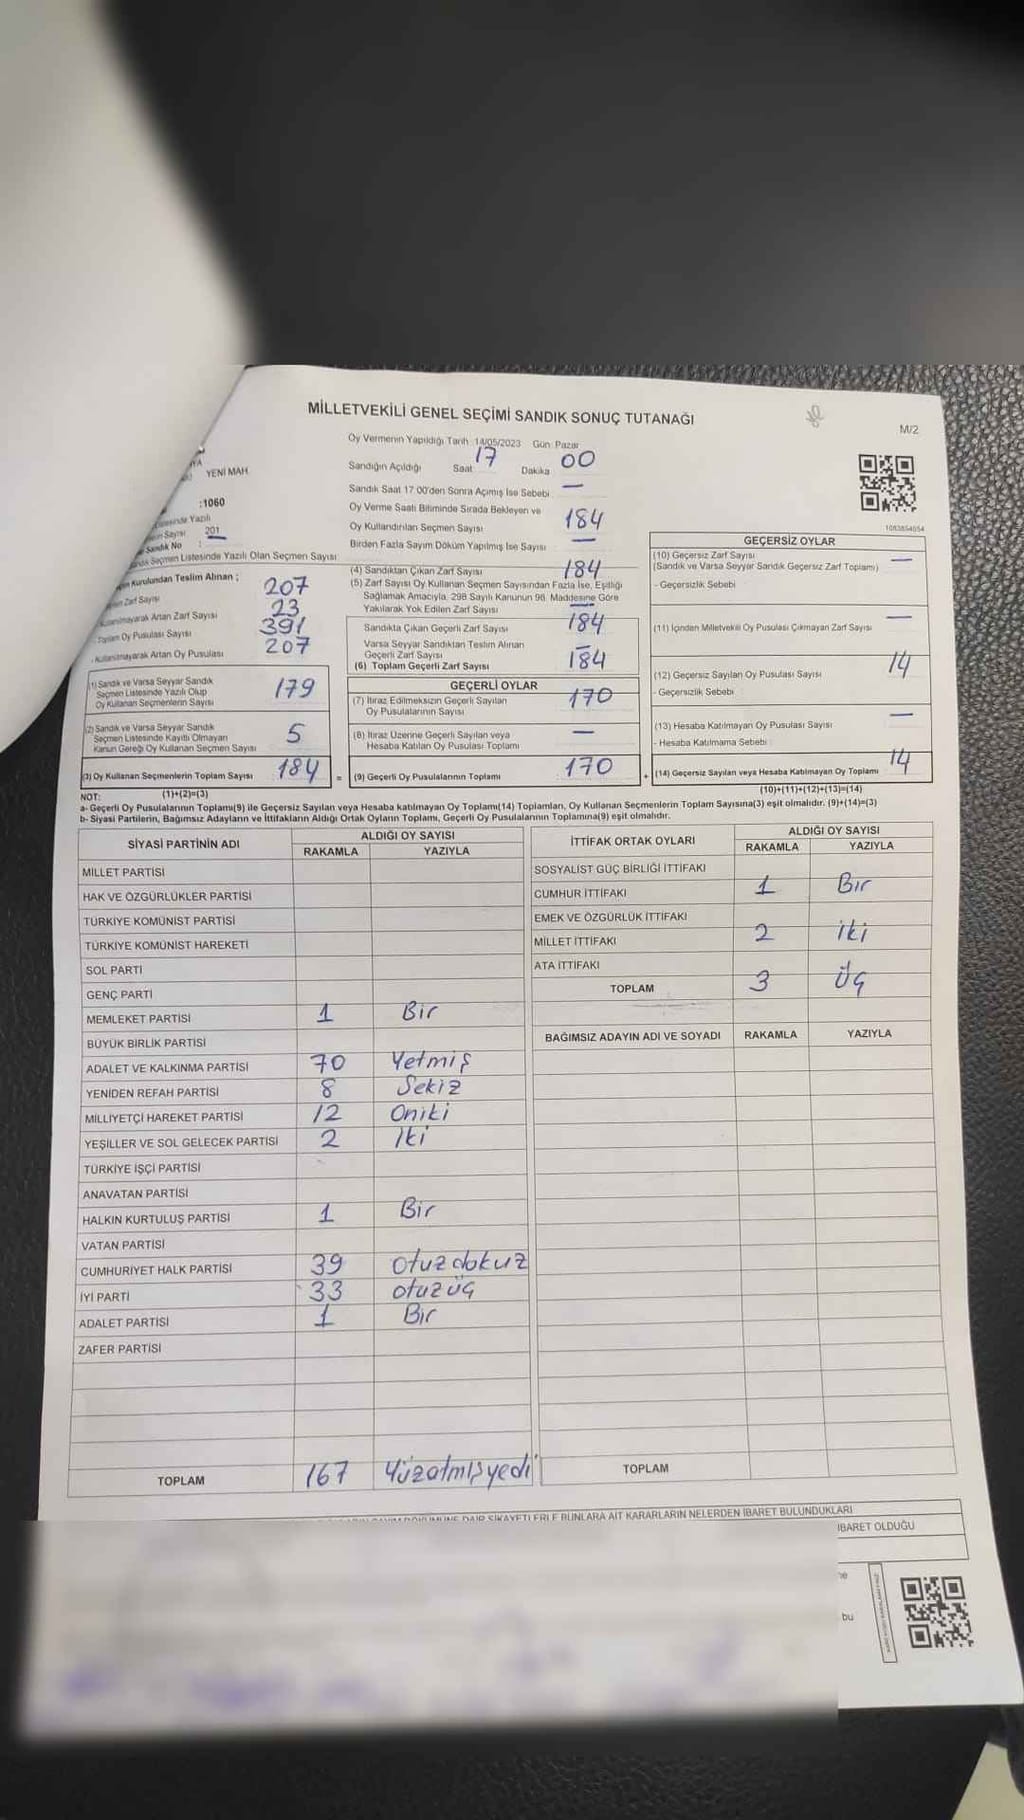 MİLLETVEKİLİ GENEL SEÇİMİ SANDIK SONUÇ TUTANAĞI
M/2
Oy Vermenin Yapıldığı Tarih :14/05/2023 Gün: Pazar
YENİ MAH.
Sandığın Açıldığı Saat 17 Dakika 00
Sandık Saat 17.00'den Sonra Açımış İse Sebebi —
:1060
Oy Verme Saati Bitiminde Sırada Bekleyen ve
Oy Kullandırılan Seçmen Sayısı 184
201
Birden Fazla Sayım Döküm Yapılmış İse Sayısı —
1083854554
Sandık No :
Seçmen Listesinde Yazılı Olan Seçmen Sayısı
Kurulundan Teslim Alınan ;
Zarf Sayısı 207
Kullanılmayarak Artan Zarf Sayısı 23
- Toplam Oy Pusulası Sayısı 391
- Kullanılmayarak Artan Oy Pusulası 207
(1) Sandık ve Varsa Seyyar Sandık
Seçmen Listesinde Yazılı Olup
Oy Kullanan Seçmenlerin Sayısı 179
(2) Sandık ve Varsa Seyyar Sandık
Seçmen Listesinde Kayıtlı Olmayan
Kanun Gereği Oy Kullanan Seçmen Sayısı 5
(3) Oy Kullanan Seçmenlerin Toplam Sayısı 184 =
(4) Sandıktan Çıkan Zarf Sayısı 184
(5) Zarf Sayısı Oy Kullanan Seçmen Sayısından Fazla İse, Eşitliği
Sağlamak Amacıyla, 298 Sayılı Kanunun 98. Maddesine Göre
Yakılarak Yok Edilen Zarf Sayısı —
Sandıkta Çıkan Geçerli Zarf Sayısı 184
Varsa Seyyar Sandıktan Teslim Alınan
Geçerli Zarf Sayısı —
(6) Toplam Geçerli Zarf Sayısı 184
GEÇERLİ OYLAR
(7) İtiraz Edilmeksizin Geçerli Sayılan
Oy Pusulalarının Sayısı 170
(8) İtiraz Üzerine Geçerli Sayılan veya
Hesaba Katılan Oy Pusulası Toplamı —
(9) Geçerli Oy Pusulalarının Toplamı 170 +
GEÇERSİZ OYLAR
(10) Geçersiz Zarf Sayısı —
(Sandık ve Varsa Seyyar Sandık Geçersiz Zarf Toplamı)
- Geçersizlik Sebebi
(11) İçinden Milletvekili Oy Pusulası Çıkmayan Zarf Sayısı —
(12) Geçersiz Sayılan Oy Pusulası Sayısı 14
- Geçersizlik Sebebi
(13) Hesaba Katılmayan Oy Pusulası Sayısı —
- Hesaba Katılmama Sebebi
(14) Geçersiz Sayılan veya Hesaba Katılmayan Oy Toplamı 14
NOT: (1)+(2)=(3)
(10)+(11)+(12)+(13)=(14)
a- Geçerli Oy Pusulalarının Toplamı(9) ile Geçersiz Sayılan veya Hesaba katılmayan Oy Toplamı(14) Toplamları, Oy Kullanan Seçmenlerin Toplam Sayısına(3) eşit olmalıdır. (9)+(14)=(3)
b- Siyasi Partilerin, Bağımsız Adayların ve İttifakların Aldığı Ortak Oyların Toplamı, Geçerli Oy Pusulalarının Toplamına(9) eşit olmalıdır.
SİYASİ PARTİNİN ADI ALDIĞI OY SAYISI
RAKAMLA YAZIYLA
MİLLET PARTİSİ
HAK VE ÖZGÜRLÜKLER PARTİSİ
TÜRKİYE KOMÜNİST PARTİSİ
TÜRKİYE KOMÜNİST HAREKETİ
SOL PARTİ
GENÇ PARTİ
MEMLEKET PARTİSİ 1 Bir
BÜYÜK BİRLİK PARTİSİ
ADALET VE KALKINMA PARTİSİ 70 Yetmiş
YENİDEN REFAH PARTİSİ 8 Sekiz
MİLLİYETÇİ HAREKET PARTİSİ 12 Oniki
YEŞİLLER VE SOL GELECEK PARTİSİ 2 İki
TÜRKİYE İŞÇİ PARTİSİ
ANAVATAN PARTİSİ
HALKIN KURTULUŞ PARTİSİ 1 Bir
VATAN PARTİSİ
CUMHURİYET HALK PARTİSİ 39 otuzdokuz
İYİ PARTİ 33 otuzüç
ADALET PARTİSİ 1 Bir
ZAFER PARTİSİ
TOPLAM 167 Yüzatmışyedi
İTTİFAK ORTAK OYLARI ALDIĞI OY SAYISI
RAKAMLA YAZIYLA
SOSYALİST GÜÇ BİRLİĞİ İTTİFAKI
CUMHUR İTTİFAKI 1 Bir
EMEK VE ÖZGÜRLÜK İTTİFAKI
MİLLET İTTİFAKI 2 iki
ATA İTTİFAKI
TOPLAM 3 Üç
BAĞIMSIZ ADAYIN ADI VE SOYADI RAKAMLA YAZIYLA
TOPLAM
DAİR ŞİKAYETLERLE BUNLARA AİT KARARLARIN NELERDEN İBARET BULUNDUKLARI
İBARET OLDUĞU
bu